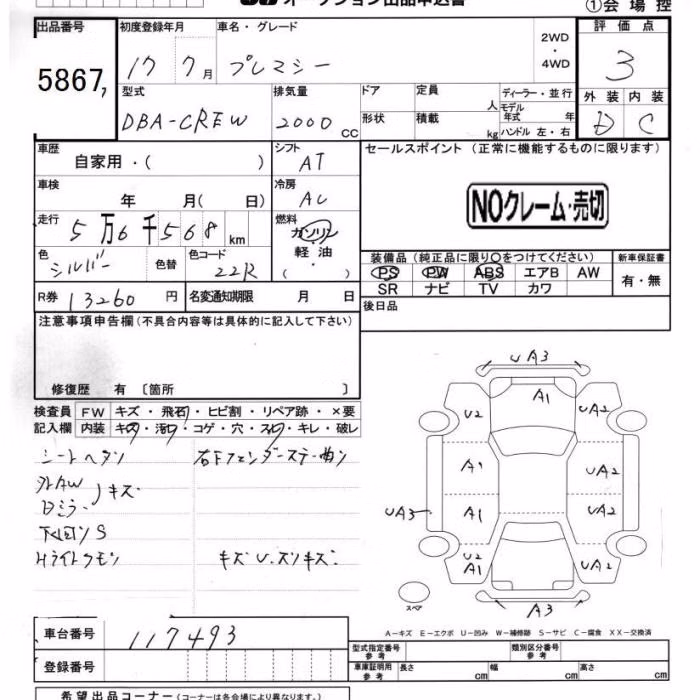 オークション出品申込書
①会場控
出品番号
5867
初度登録年月
17 7月
車名・グレード
プレマシー
2WD
・
4WD
評価点
3
型式
DBA-CREW
排気量
2000 CC
ドア
形状
定員
人
積載
kg
ディーラー・並行
モデル年式 年
ハンドル 左・右
外装 内装
D C
車歴
自家用・( )
シフト
AT
セールスポイント (正常に機能するものに限ります)
車検
年 月( 日)
冷房
AC
NOクレーム・売切
走行
5万6千568 km
燃料
ガソリン
軽油
・( )
色
シルバー
色替
色コード
22R
装備品 (純正品に限り○をつけてください)
新車保証書
PS PW ABS エアB AW
SR ナビ TV カワ
有・無
R券 13260 円
名変通知期限 月 日
後日品
注意事項申告欄 (不具合内容等は具体的に記入して下さい)
修復歴 有 〔箇所 〕
検査員記入欄
FW キズ・飛石・ヒビ割・リペア跡・×要
内装 キズ・汚レ・コゲ・穴・スレ・キレ・破レ
シートヘタリ
外AW
キズ
下回リS
Hライトクモリ
UA3
A1
U2
UA2
A1
UA2
UA3
A1
UA2
U2
A1
UA2
A3
スペア
A-キズ E-エクボ U-凹み W-補修跡 S-サビ C-腐食 XX-交換済
車台番号
117493
登録番号
型式指定番号
参考
類別区分番号
参考
車庫証明用
参考
長さ cm
幅 cm
高さ cm
希望出品コーナー (コーナーは各会場により異なります。)